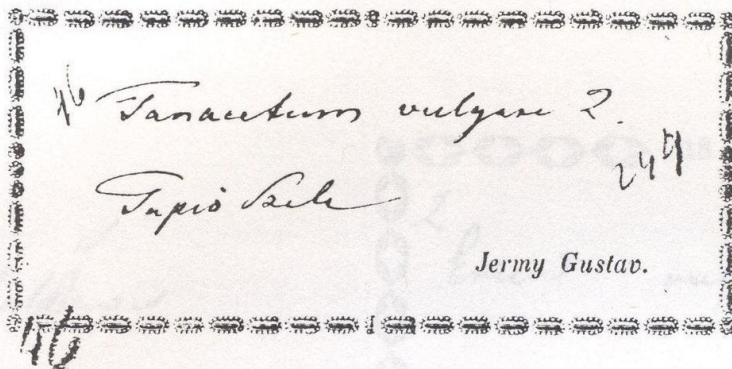 46 Tanacetum vulgare L.
Tapió Szele
249
Jermy Gustav.
46